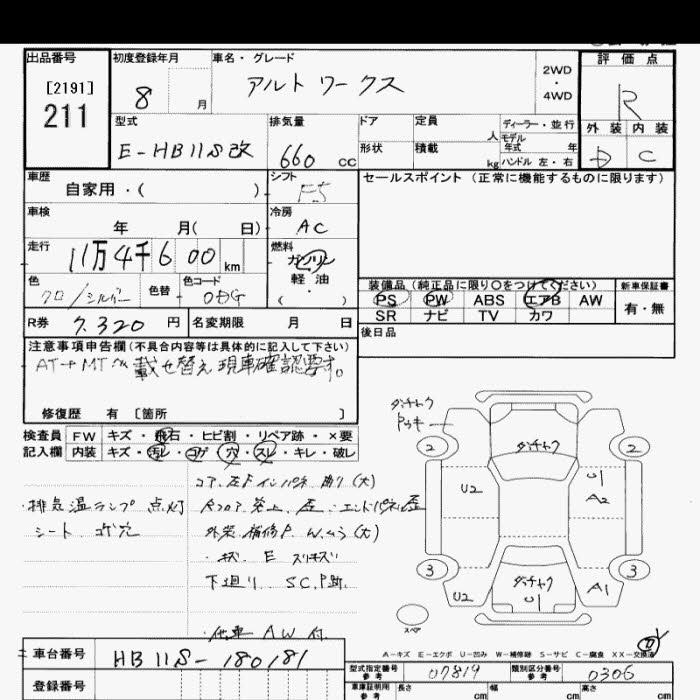 出品番号
[2191]
211
初度登録年月
8 月
車名・グレード
アルト ワークス
2WD
・
4WD
評価点
R
外装 内装
D C
型式
E-HB11S改
排気量
660 cc
ドア
形状
定員 人
積載 kg
ディーラー・並行
モデル年式 年
ハンドル 左・右
車歴
自家用・( )
シフト
F5
セールスポイント(正常に機能するものに限ります)
車検
年 月( 日)
冷房
AC
走行
11万4千600 km
燃料
ガソリン
軽・油
( )
色
クロ/シルバー
色替
色コード
0DG
装備品(純正品に限り〇をつけてください)
PS PW ABS エアB AW
SR ナビ TV カワ
新車保証書
有・無
R券 7,320 円
名変期限 月 日
後日品
注意事項申告欄(不具合内容等は具体的に記入して下さい)
AT→MTへ載せ替え現車確認要す。
修復歴 有 [箇所 ]
検査員記入欄
FW キズ・飛石・ヒビ割・リペア跡・×要
内装 キズ・汚レ・コゲ・穴・スレ・キレ・破レ
排気温ランプ 点灯
シート コゲ穴
外装 補修P Wムラ(大)
・キズ E スリキズ
下廻り SC,P跡
・他車 AW 付
ダンチャク
ダンチャク
2
2
U2
U1
A2
3
3
ダンチャク
U1
U2
A1
スペア
A-キズ E-エクボ U-凹み W-補修跡 S-サビ C-腐食 XX-交換済
車台番号 HB11S-180181
登録番号
型式指定番号 参考 07819
類別区分番号 参考 0306
車庫証明用 参考 長さ cm 幅 cm 高さ cm